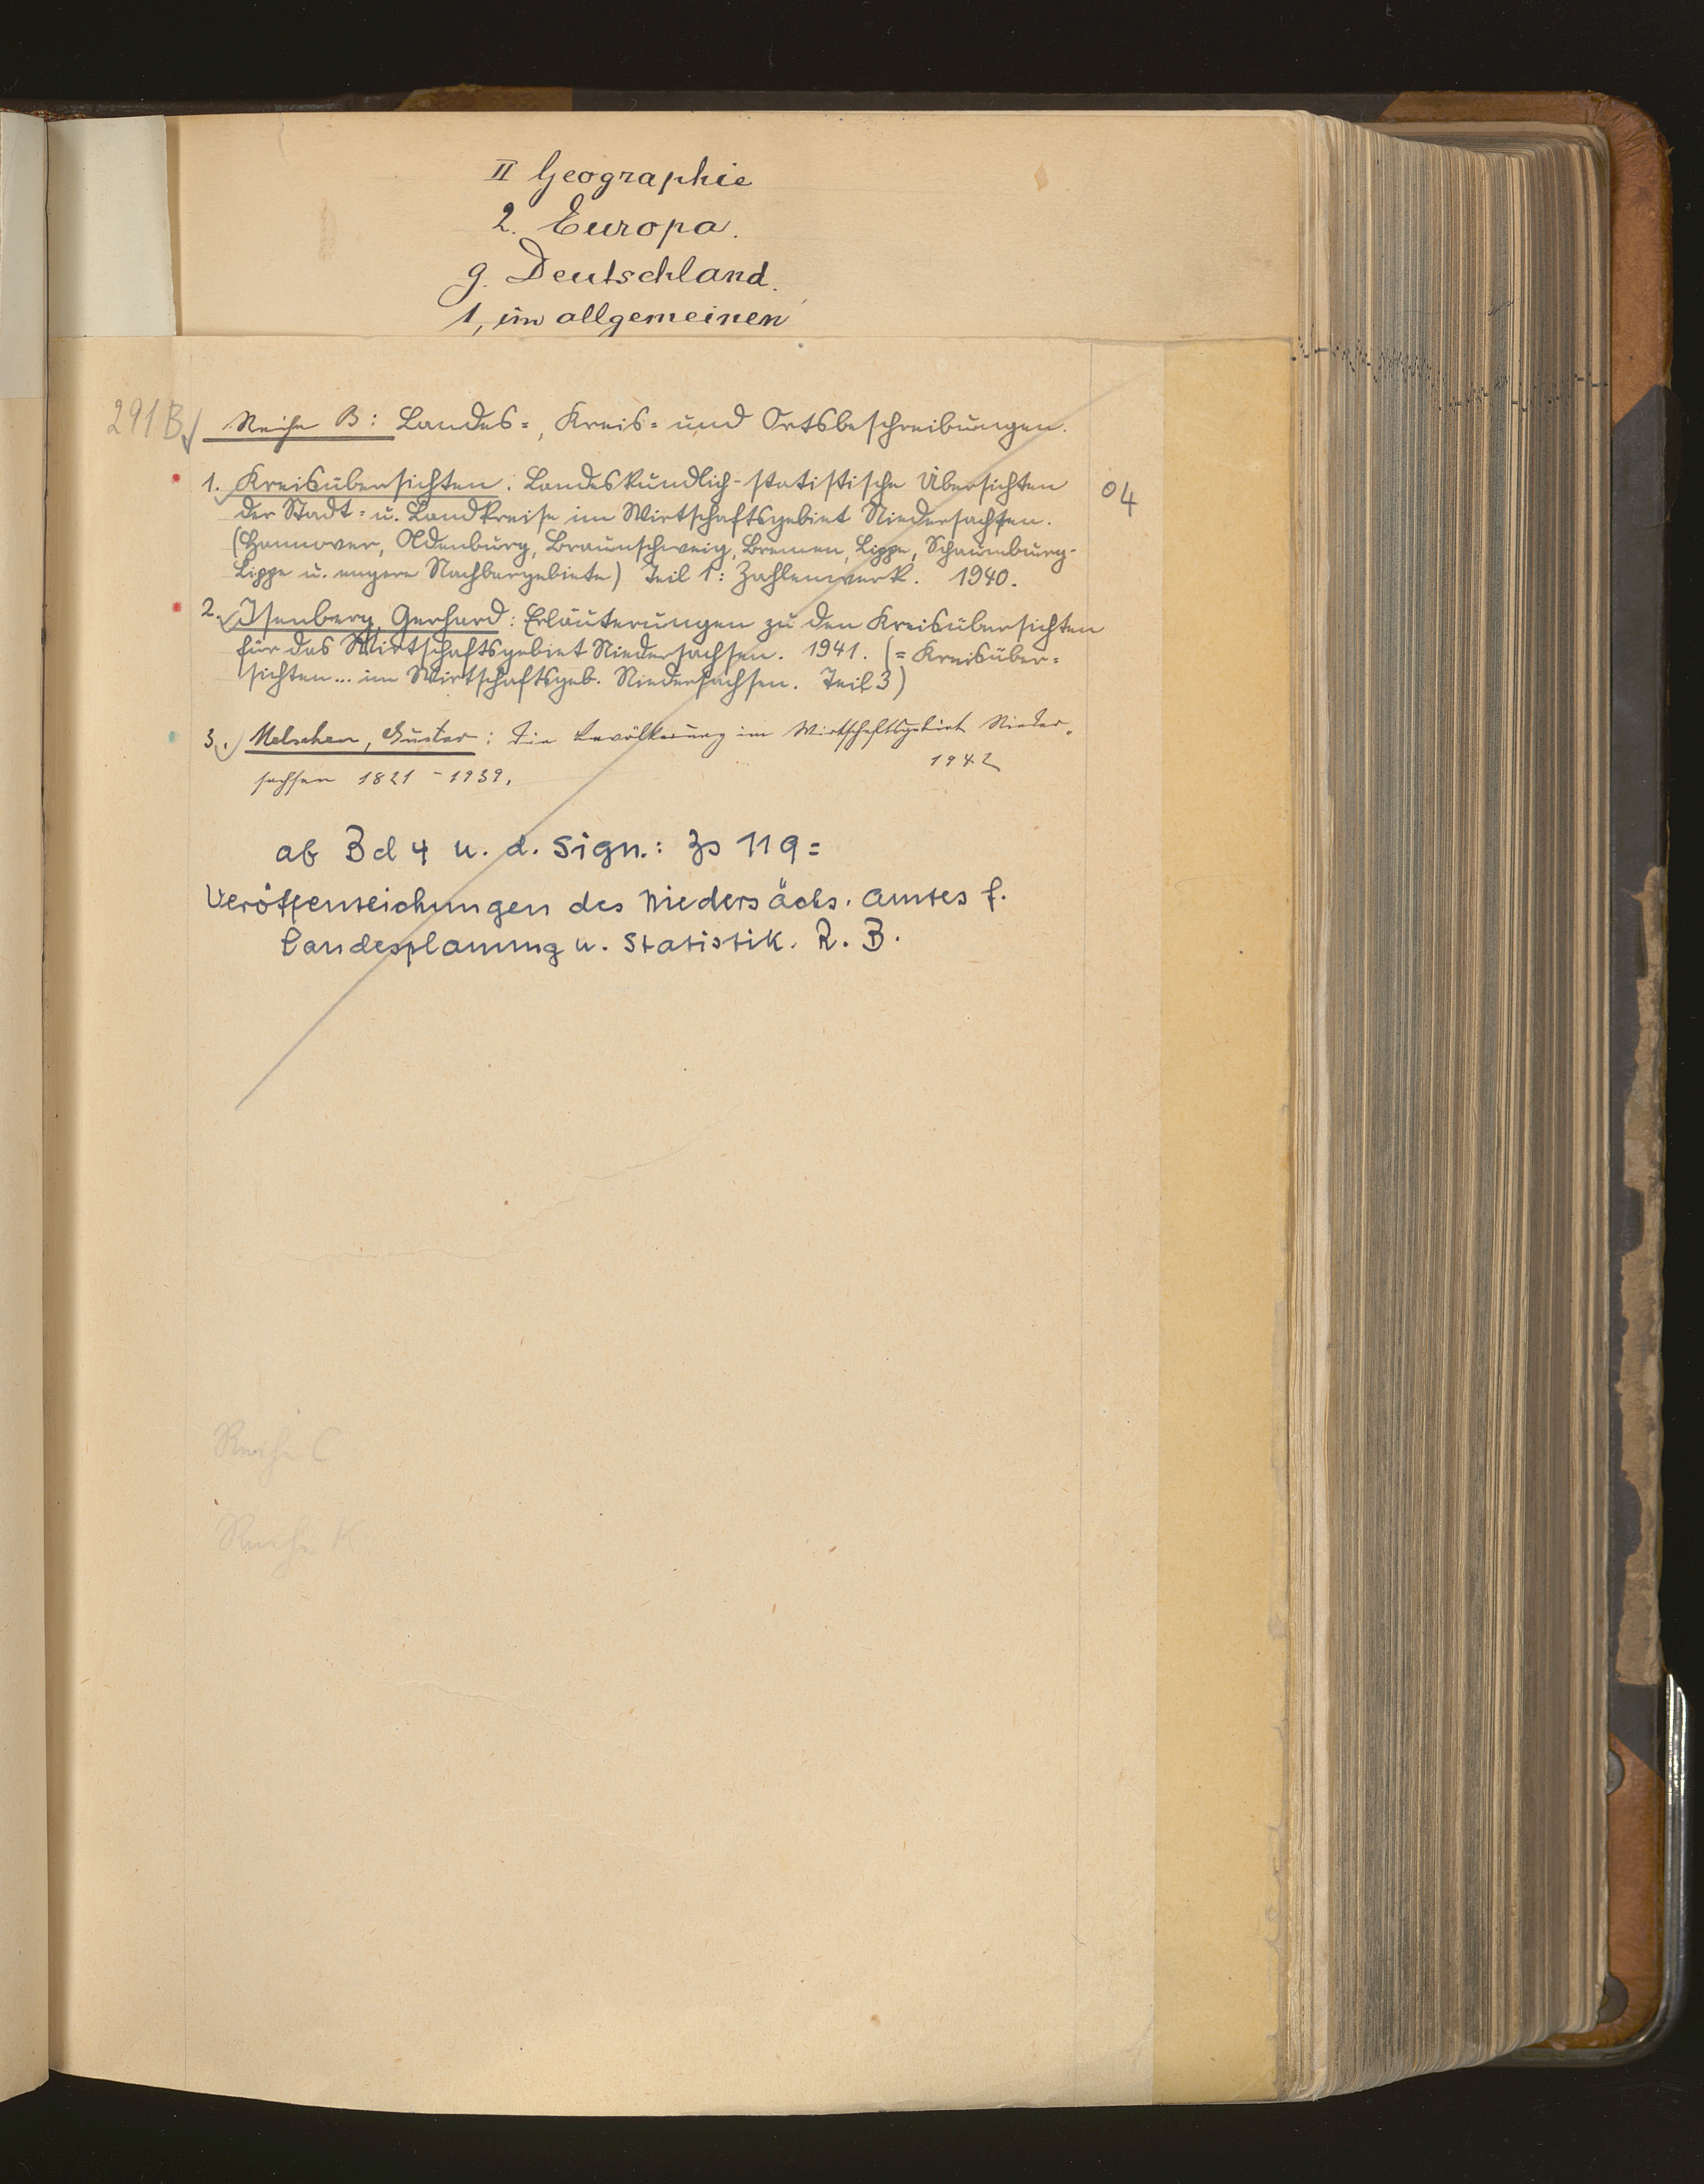 II Geographie
2. Europa.
g. Deutschland.
1, im allgemeinen
291 B. Reihe B: Landes=, Kreis= und Ortsbeschreibungen.
1. Kreisübersichten. Landeskundlich-statistische Übersichten 04
der Stadt= u. Landkreise im Wirtschaftsgebiet Niedersachsen.
(Hannover, Oldenburg, Braunschweig, Bremen, Lippe, Schaumburg-
Lippe u. engere Nachbargebiete) Teil 1: Zahlenwerk. 1940.
2. Isenberg, Gerhard: Erläuterungen zu den Kreisübersichten
für das Wirtschaftsgebiet Niedersachsen. 1941. (= Kreisüber=
sichten... im Wirtschaftsgeb. Niedersachsen. Teil 3)
3. Uelschen, Gustav: Die Bevölkerung im Wirtschaftsgebiet Nieder=
sachsen 1821 - 1939. 1942
ab Bd 4 u. d. Sign.: Zs 119=
Veröffentlichungen des Niedersächs. Amtes f.
Landesplanung u. Statistik. R. B.
Reihe C
Reihe K